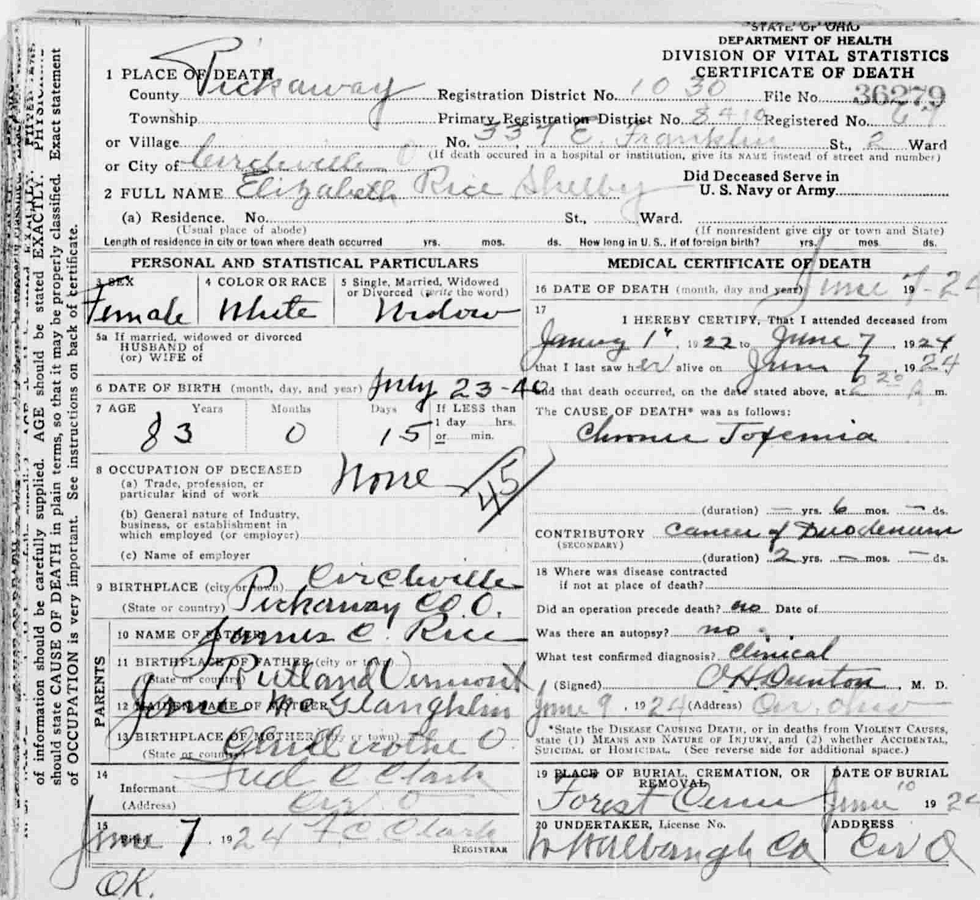 STATE OF OHIO
DEPARTMENT OF HEALTH
DIVISION OF VITAL STATISTICS
CERTIFICATE OF DEATH
1 PLACE OF DEATH
County Pickaway Registration District No. 1030 File No. 36279
Township Primary Registration District No. 8410 Registered No. 67
or Village No. 337 E. Franklin St., 2 Ward
or City of Circleville O (If death occured in a hospital or institution, give its NAME instead of street and number)
2 FULL NAME Elizabeth Rice Shelby Did Deceased Serve in U. S. Navy or Army
(a) Residence. No. St., Ward.
(Usual place of abode) (If nonresident give city or town and State)
Length of residence in city or town where death occurred yrs. mos. ds. How long in U. S., if of foreign birth? yrs. mos. ds.
PERSONAL AND STATISTICAL PARTICULARS
3 SEX Female
4 COLOR OR RACE White
5 Single, Married, Widowed or Divorced (write the word) Widow
5a If married, widowed or divorced
HUSBAND of
(or) WIFE of
6 DATE OF BIRTH (month, day, and year) July 23-40
7 AGE Years Months Days If LESS than
1 day hrs.
83 0 15 or min.
8 OCCUPATION OF DECEASED None 45
(a) Trade, profession, or
particular kind of work
(b) General nature of Industry,
business, or establishment in
which employed (or employer)
(c) Name of employer
9 BIRTHPLACE (city or town) Circleville
(State or country) Pickaway Co O.
PARENTS
10 NAME OF FATHER James C. Rice
11 BIRTHPLACE OF FATHER (city or town)
(State or country) Rutland Vermont
12 MAIDEN NAME OF MOTHER Jane McGlaughlin
13 BIRTHPLACE OF MOTHER (city or town)
(State or country) Chillicothe O
14
Informant Fred C Clark
(Address) Cir O
15
Filed June 7, 1924 F. C. Clark
REGISTRAR
OK.
MEDICAL CERTIFICATE OF DEATH
16 DATE OF DEATH (month, day and year) June 7-24
17
I HEREBY CERTIFY, That I attended deceased from
January 1st, 1922 to June 7, 1924
that I last saw her alive on June 7, 1924
and that death occurred, on the date stated above, at 2 20 A m.
The CAUSE OF DEATH* was as follows:
Chronic Toxemia
(duration) — yrs. 6 mos. — ds.
CONTRIBUTORY Cancer of Duodenum
(SECONDARY)
(duration) 2 yrs. — mos. — ds.
18 Where was disease contracted
if not at place of death?
Did an operation precede death? no Date of
Was there an autopsy? no
What test confirmed diagnosis? Clinical
(Signed) , M. D.
June 9, 1924 (Address) Cir. Ohio
*State the DISEASE CAUSING DEATH, or in deaths from VIOLENT CAUSES,
state (1) MEANS AND NATURE OF INJURY, and (2) whether ACCIDENTAL,
SUICIDAL or HOMICIDAL. (See reverse side for additional space.)
19 PLACE OF BURIAL, CREMATION, OR REMOVAL
Forest Cem
DATE OF BURIAL
June 10 1924
20 UNDERTAKER, License No.
W H Albaugh Co
ADDRESS
Cir O
of information should be carefully supplied. AGE should be stated EXACTLY. PHYSICIANS
should state CAUSE OF DEATH in plain terms, so that it may be properly classified. Exact statement
of OCCUPATION is very important. See instructions on back of certificate.